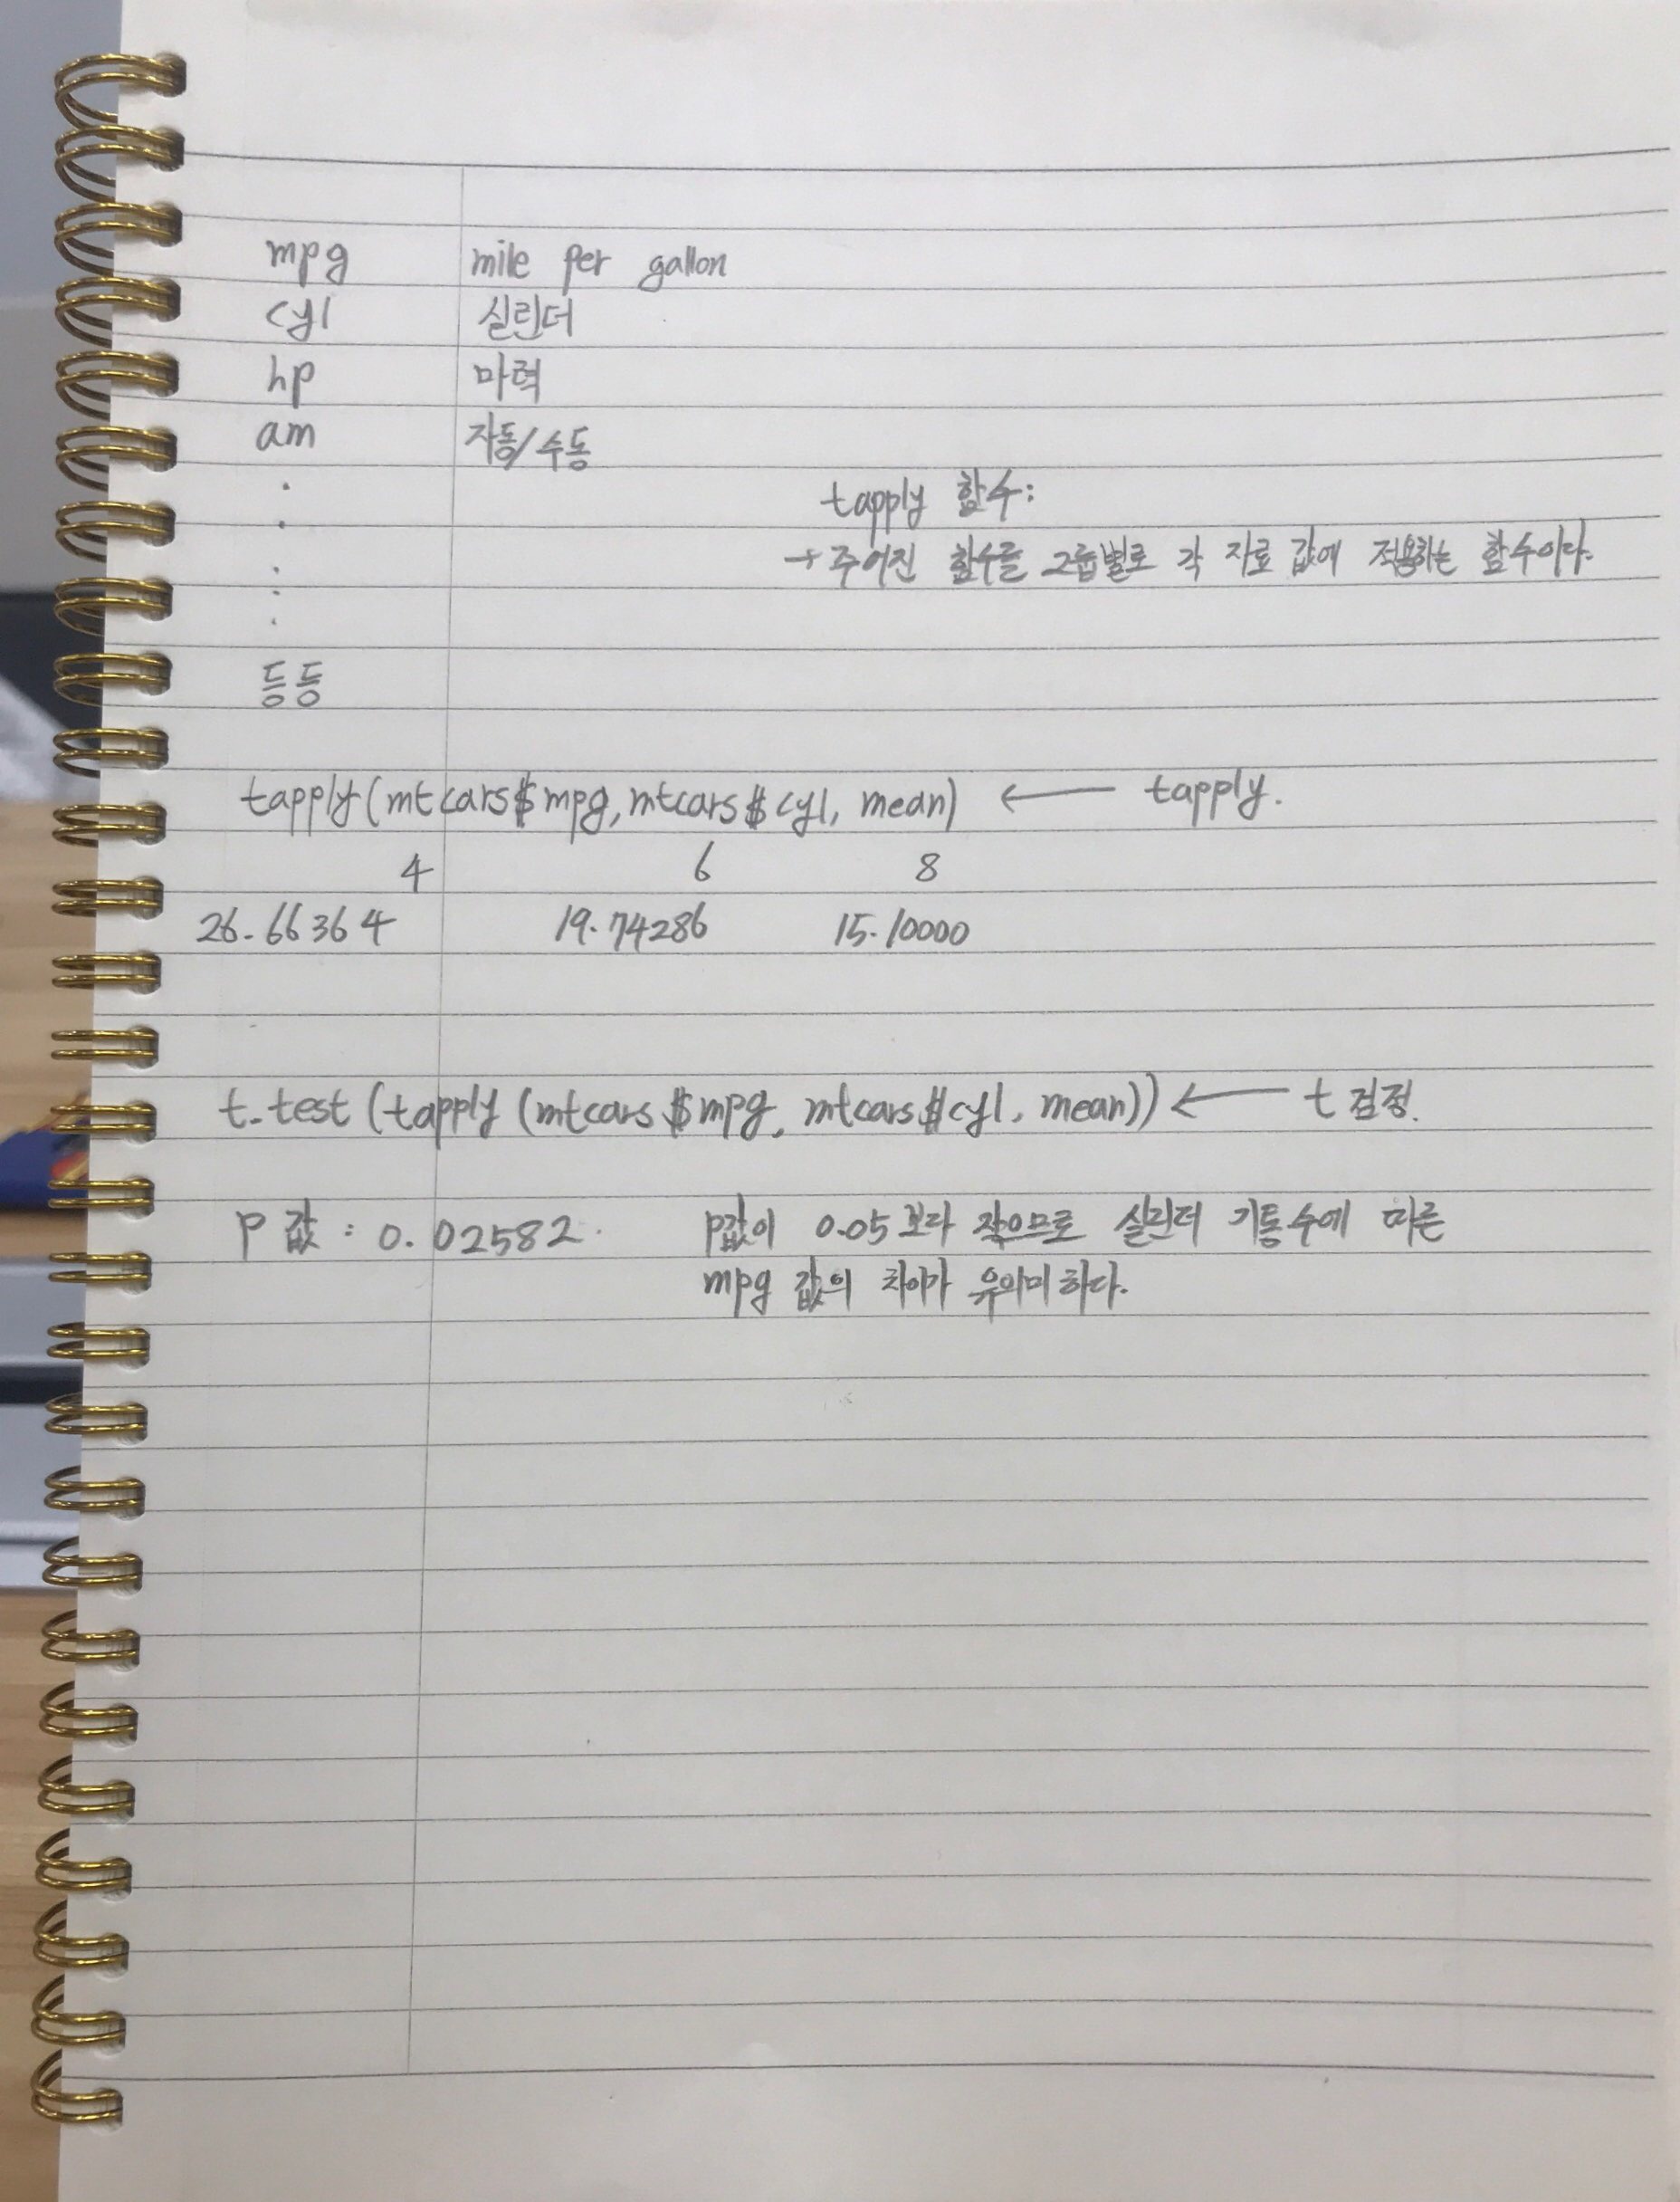 mpg mile per gallon
cyl 실린더
hp 마력
am 자동/수동
tapply 함수:
→ 주어진 함수를 그룹별로 각 자료 값에 적용하는 함수이다.
등등
tapply(mtcars$mpg, mtcars$cyl, mean) ← tapply.
4 6 8
26.66364 19.74286 15.10000
t.test (tapply (mtcars$mpg, mtcars$cyl, mean)) ← t 검정.
P 값 : 0.02582. P값이 0.05보다 작으므로 실린더 기통수에 따른
mpg 값의 차이가 유의미하다.